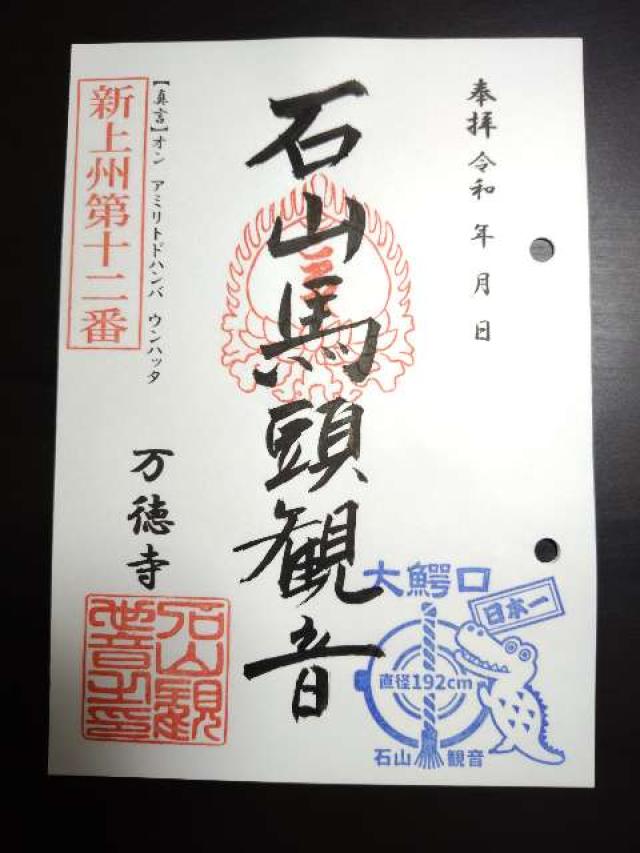 奉拝 令和 年 月 日
石山馬頭観音
【真言】オン アミリトドハンバ ウンハッタ
新上州第十二番
万徳寺
石山観
音之印
大鰐口
日本一
直径192cm
石山観音